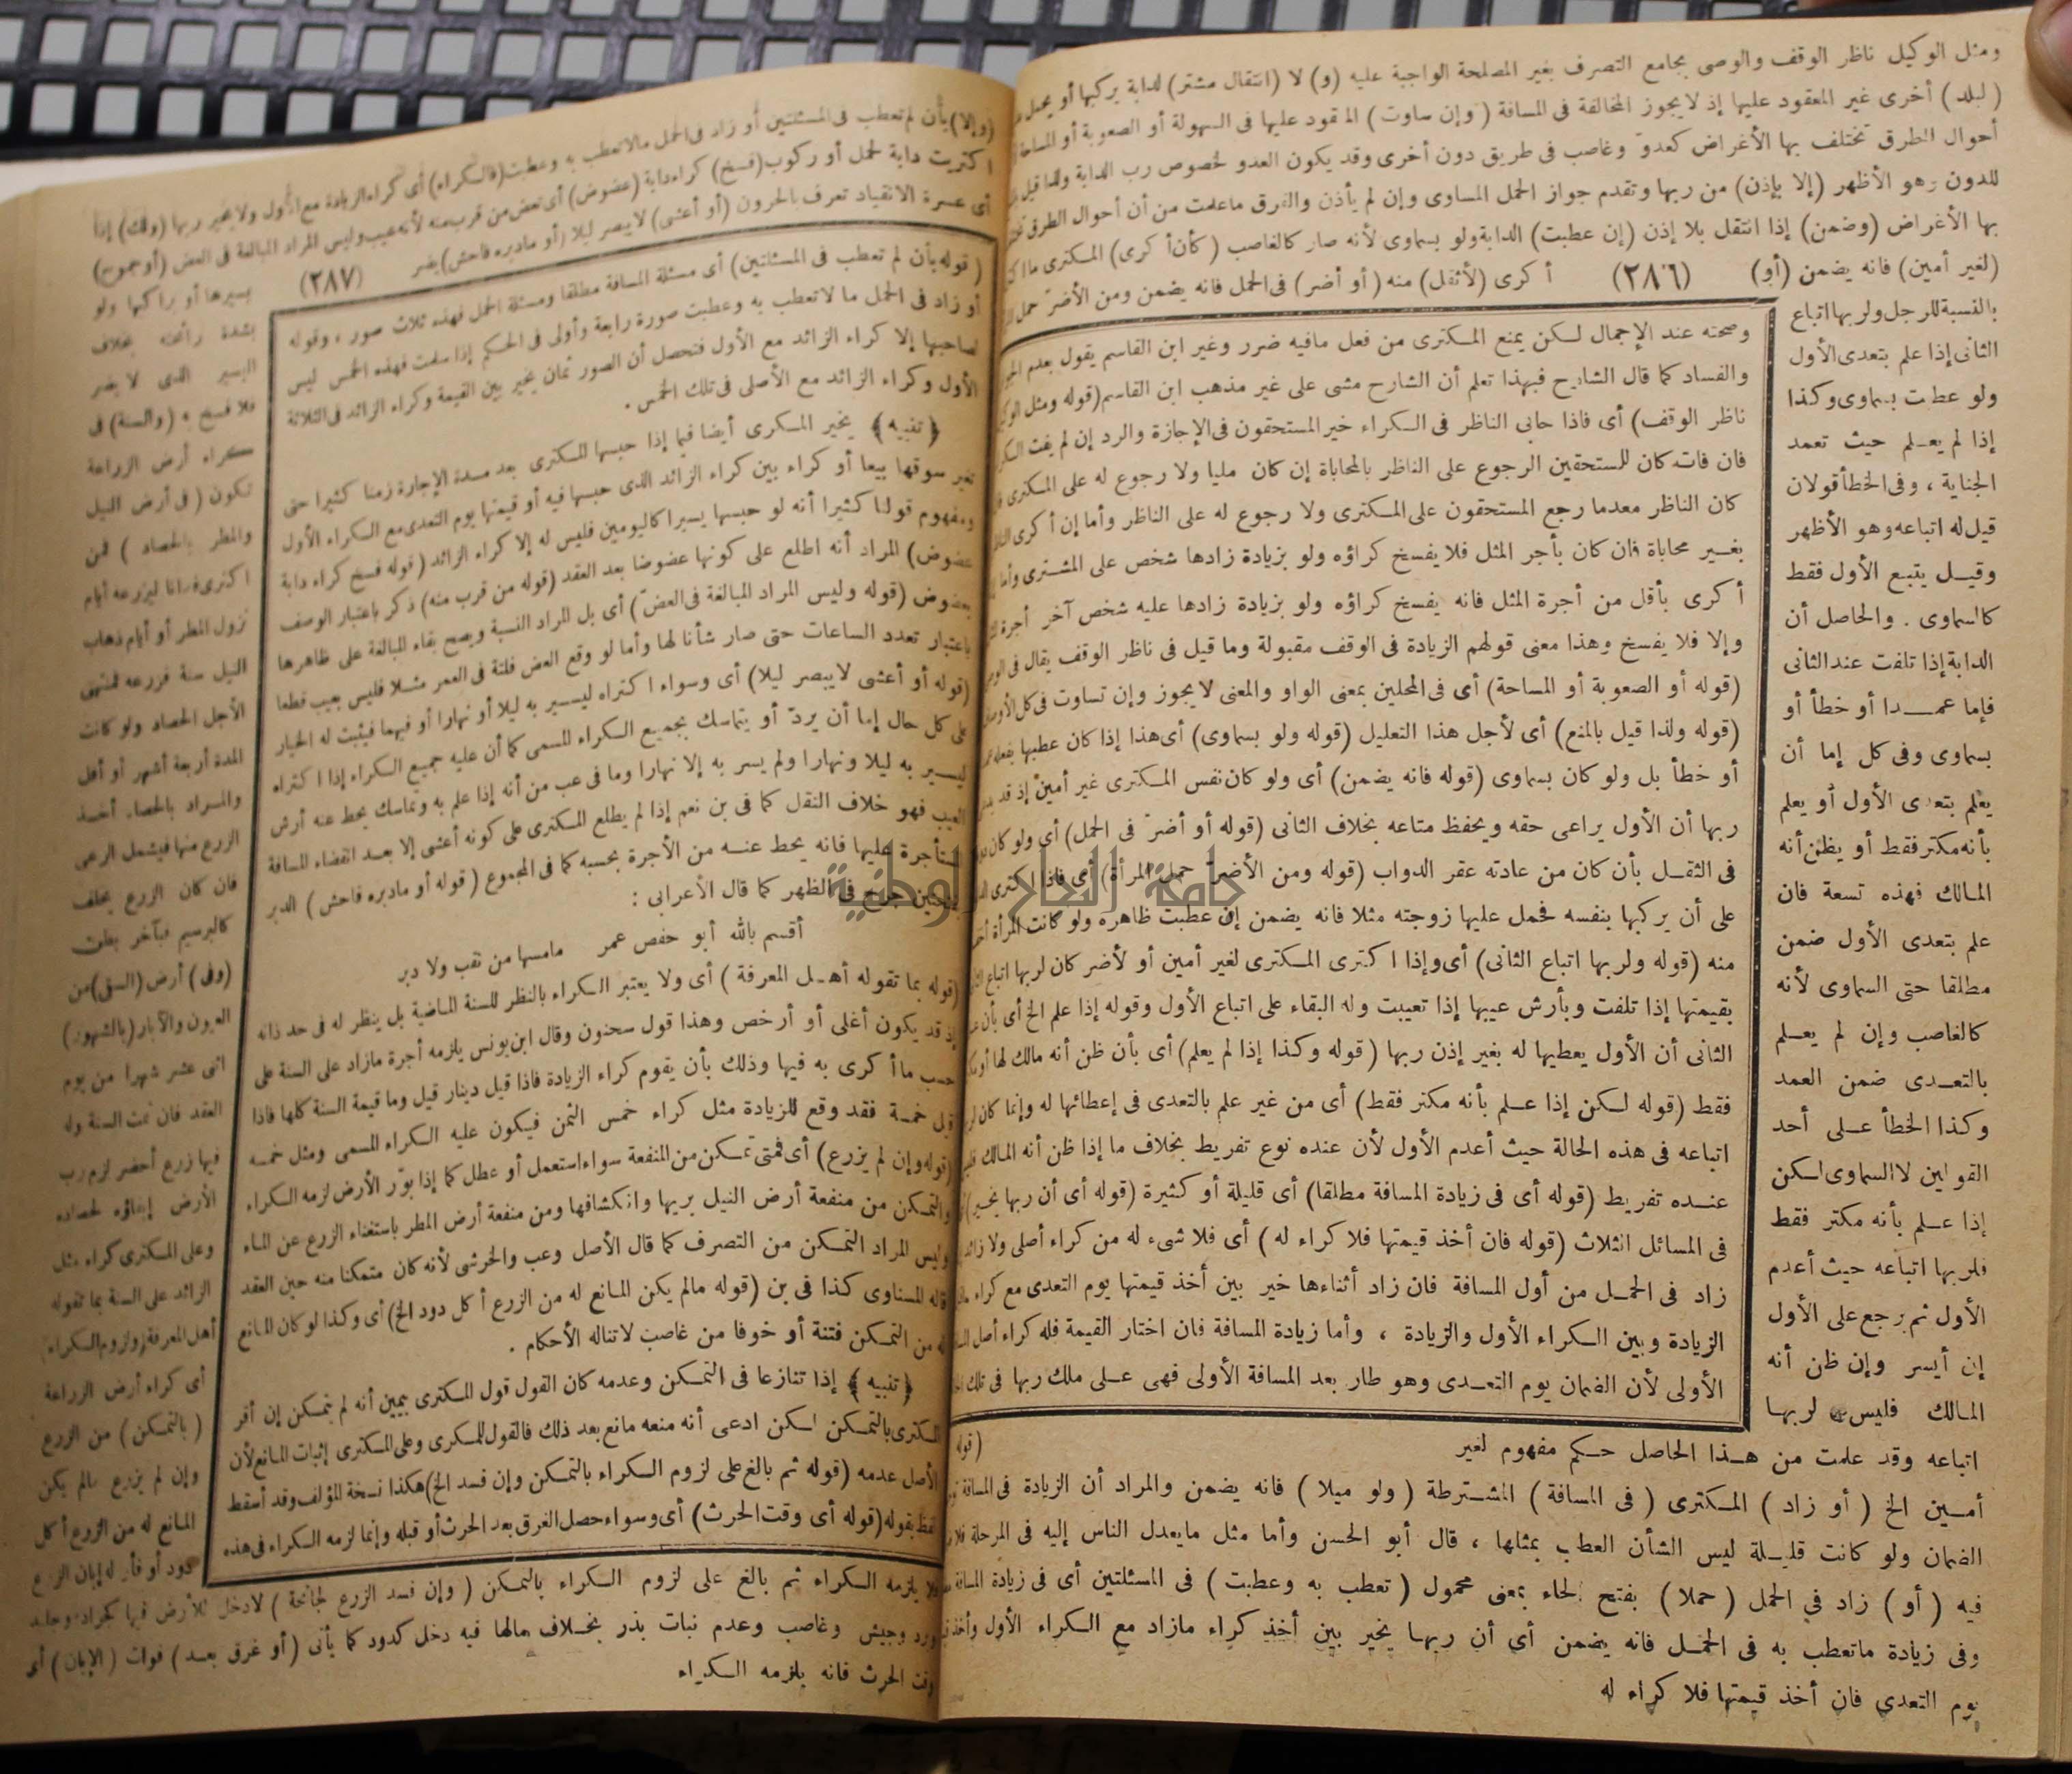 ومثل الوكيل ناظر الوقف والوصى بجامع التصرف بغير المصلحة الواجبة عليه (و) لا (انتقال مشتر) لدابة يركبها أو يحمل
(لبلد) أخرى غير المعقود عليها إذ لا يجوز المخالفة فى المسافة (وإن ساوت) المعقود عليها فى السهولة أو الصعوبة أو المساحة
أحوال الطرق تختلف بها الأغراض كعدوّ وغاصب فى طريق دون أخرى وقد يكون العدو لخصوص رب الدابة ولذا قيل
للدون وهو الأظهر (إلا بإذن) من ربها وتقدم جواز الحمل المساوى وإن لم يأذن والفرق ما علمت من أن أحوال الطرق
بها الأغراض (وضمن) إذا انتقل بلا إذن (إن عطبت) الدابة ولو بسماوى لأنه صار كالغاصب (كأن أكرى) المكترى ما اكترى
(لغير أمين) فانه يضمن (أو)
(٢٨٦)
أكرى (لأثقل) منه (أو أضر) فى الحمل فانه يضمن ومن الأضرّ حمل
بالنسبة للرجل ولربها اتباع
الثانى إذا علم بتعدى الأول
ولو عطبت بسماوى وكذا
إذا لم يعلم حيث تعمد
الجناية ، وفى الخطأ قولان
قيل له اتباعه وهو الأظهر
وقيل يتبع الأول فقط
كالسماوى . والحاصل أن
الدابة إذا تلفت عند الثانى
فإما عمدا أو خطأ أو
بسماوى وفى كل إما أن
يعلم بتعدى الأول أو يعلم
بأنه مكتر فقط أو يظن أنه
المالك فهذه تسعة فان
علم بتعدى الأول ضمن
مطلقا حتى السماوى لأنه
كالغاصب وإن لم يعلم
بالتعدى ضمن العمد
وكذا الخطأ على أحد
القولين لا السماوى لكن
إذا علم بأنه مكتر فقط
فلربها اتباعه حيث أعدم
الأول ثم يرجع على الأول
إن أيسر وإن ظن أنه
المالك فليس لربها
وصحته عند الإجمال لكن يمنع المكترى من فعل مافيه ضرر وغير ابن القاسم يقول بعدم
والفساد كما قال الشارح فبهذا تعلم أن الشارح مشى على غير مذهب ابن القاسم (قوله ومثل الوكيل
ناظر الوقف) أى فاذا حابى الناظر فى الكراء خير المستحقون فى الإجازة والرد إن لم يفت الكراء
فان فات كان للمستحقين الرجوع على الناظر بالمحاباة إن كان مليا ولا رجوع له على المكترى
كان الناظر معدما رجع المستحقون على المكترى ولا رجوع له على الناظر وأما إن أكرى
بغير محاباة فان كان بأجر المثل فلا يفسخ كراؤه ولو بزيادة زادها شخص على المشترى وأما
أكرى بأقل من أجرة المثل فانه يفسخ كراؤه ولو بزيادة زادها عليه شخص آخر أجرة
وإلا فلا يفسخ وهذا معنى قولهم الزيادة فى الوقف مقبولة وما قيل فى ناظر الوقف يقال فى
(قوله أو الصعوبة أو المساحة) أى فى المحلين بمعنى الواو والمعنى لا يجوز وإن تساوت فى كل
(قوله ولذا قيل بالمنع) أى لأجل هذا التعليل (قوله ولو بسماوى) أى هذا إذا كان عطبها بفعله
أو خطأ بل ولو كان بسماوى (قوله فانه يضمن) أى ولو كان نفس المكترى غير أمين إذ قد
ربها أن الأول يراعى حقه ويحفظ متاعه بخلاف الثانى (قوله أو أضرّ فى الحمل) أى ولو كان
فى الثقل بأن كان من عادته عقر الدواب (قوله ومن الأضرّ حمل المرأة) أى فاذا اكترى
على أن يركبها بنفسه فحمل عليها زوجته مثلا فانه يضمن إن عطبت ظاهره ولو كانت المرأة
منه (قوله ولربها اتباع الثانى) أى وإذا اكترى المكترى لغير أمين أو لأضر كان لربها اتباع
بقيمتها إذا تلفت وبأرش عيبها إذا تعيبت وله البقاء على اتباع الأول وقوله إذا علم الخ أى بأن
الثانى أن الأول يعطيها له بغير إذن ربها (قوله وكذا إذا لم يعلم) أى بأن ظن أنه مالك لها أو
فقط (قوله لكن إذا علم بأنه مكتر فقط) أى من غير علم بالتعدى فى إعطائها له وإنما كان
اتباعه فى هذه الحالة حيث أعدم الأول لأن عنده نوع تفريط بخلاف ما إذا ظن أنه المالك
عنده تفريط (قوله أى فى زيادة المسافة مطلقا) أى قليلة أو كثيرة (قوله أى أن ربها يخير)
فى المسائل الثلاث (قوله فان أخذ قيمتها فلا كراء له) أى فلا شىء له من كراء أصلى ولا
زاد فى الحمل من أول المسافة فان زاد أثناءها خير بين أخذ قيمتها يوم التعدى مع كراء
الزيادة وبين الكراء الأول والزيادة ، وأما زيادة المسافة فان اختار القيمة فله كراء أصل
الأولى لأن الضمان يوم التعدى وهو طار بعد المسافة الأولى فهى على ملك ربها فى تلك
(قوله
اتباعه وقد علمت من هذا الحاصل حكم مفهوم لغير
أمين الخ (أو زاد) المكترى (فى المسافة) المشترطة (ولو ميلا) فانه يضمن والمراد أن الزيادة فى المسافة
الضمان ولو كانت قليلة ليس الشأن العطب بمثلها ، قال أبو الحسن وأما مثل ما يعدل الناس إليه فى المرحلة
فيه (أو) زاد في الحمل (حملا) بفتح الحاء بمعنى محمول (تعطب به وعطبت) فى المسئلتين أى فى زيادة المسافة
وفى زيادة ماتعطب به فى الحمل فانه يضمن أى أن ربها يخير بين أخذ كراء مازاد مع الكراء الأول وأخذ
يوم التعدى فان أخذ قيمتها فلا كراء له
(وإلا) بأن لم تعطب فى المسئلتين أو زاد فى الحمل مالا تعطب به وعطبت (فالكراء) أى كراء الزيادة مع الأول ولا يخير ربها (ولك) إذا
اكتريت دابة لحمل أو ركوب (فسخ) كراء دابة (عضوض) أى تعض من قرب منه لأنه عيب وليس المراد المبالغة فى العض (أو جموح)
أى عسرة الانقياد تعرف بالحرون (أو أعشى) لا يبصر ليلا (أو مادبره فاحش) يضر
(٢٨٧)
بسيرها أو براكبها ولو
بشدة رائحته بخلاف
اليسير الذى لا يضر
فلا فسخ به (والسنة) فى
كراء أرض الزراعة
تكون (فى أرض النيل
والمطر بالحصاد) فمن
نزول المطر أو أيام ذهاب
الأجل الحصاد ولو كانت
المدة أربعة أشهر أو أقل
والمراد بالحصاد أخذ
الزرع منها فيشمل الرعى
فان كان الزرع يخلف
كالبرسيم فبآخر بطن
(وفى) أرض (السقى) من
العيون والآبار (بالشهور)
اثنى عشر شهرا من يوم
العقد فان تمت السنة وله
فيها زرع أخضر لزم رب
الأرض إبقاؤه لحصاده
وعلى المكترى كراء مثل
الزائد على السنة بما تقوله
أهل المعرفة (ولزوم الكراء)
أى كراء أرض الزراعة
(بالتمكن) من الزرع
وإن لم يزرع مالم يكن
المانع له من الزرع أكل
(قوله بأن لم تعطب فى المسئلتين) أى مسئلة المسافة مطلقا ومسئلة الحمل فهذه ثلاث صور ، وقوله
أو زاد فى الحمل ما لا تعطب به وعطبت صورة رابعة وأولى فى الحكم إذا سلمت فهذه الخمس ليس
لصاحبها إلا كراء الزائد مع الأول فتحصل أن الصور ثمان يخير بين القيمة وكراء الزائد فى الثلاثة
الأول وكراء الزائد مع الأصلى فى تلك الخمس .
﴿تنبيه﴾ يخير المكرى أيضا فيما إذا حبسها المكترى بعد مدة الإجارة زمنا كثيرا حتى
تغير سوقها بيعا أو كراء بين كراء الزائد الذى حبسها فيه أو قيمتها يوم التعدى مع الكراء الأول
ومفهوم قولنا كثيرا أنه لو حبسها يسيرا كاليومين فليس له إلا كراء الزائد (قوله فسخ كراء دابة
عضوض) المراد أنه اطلع على كونها عضوضا بعد العقد (قوله من قرب منه) ذكر باعتبار الوصف
بعضوض (قوله وليس المراد المبالغة فى العض) أى بل المراد النسبة ويصح بقاء المبالغة على ظاهرها
باعتبار تعدد الساعات حتى صار شأنا لها وأما لو وقع العض فلتة فى العمر مثلا فليس بعيب قطعا
(قوله أو أعشى لا يبصر ليلا) أى وسواء اكتراه ليسير به ليلا أو نهارا أو فيهما فيثبت له الخيار
على كل حال إما أن يردّ أو يتماسك بجميع الكراء المسمى كما أن عليه جميع الكراء إذا اكتراه
ليسير به ليلا ونهارا ولم يسر به إلا نهارا وما فى عب من أنه إذا علم به وتماسك يحط عنه أرش
العيب فهو خلاف النقل كما فى بن نعم إذا لم يطلع المكترى على كونه أعشى إلا بعد انقضاء المسافة
المستأجرة عليها فانه يحط عنه من الأجرة بحسبه كما فى المجموع (قوله أو مادبره فاحش) الدبر
جرح فى الظهر كما قال الأعرابى :
أقسم بالله أبو حفص عمر مامسها من نقب ولا دبر
(قوله بما تقوله أهل المعرفة) أى ولا يعتبر الكراء بالنظر للسنة الماضية بل ينظر له فى حد ذاته
إذ قد يكون أغلى أو أرخص وهذا قول سحنون وقال ابن يونس يلزمه أجرة مازاد على السنة على
حسب ما أكرى به فيها وذلك بأن يقوم كراء الزيادة فاذا قيل دينار قيل وما قيمة السنة كلها فاذا
قيل خمسة فقد وقع للزيادة مثل كراء خمس الثمن فيكون عليه الكراء المسمى ومثل خمسه
(قوله وإن لم يزرع) أى فمتى تمكن من المنفعة سواء استعمل أو عطل كما إذا بوّر الأرض لزمه الكراء
والتمكن من منفعة أرض النيل بريها وانكشافها ومن منفعة أرض المطر باستغناء الزرع عن الماء
وليس المراد التمكن من التصرف كما قال الأصل وعب والخرشى لأنه كان متمكنا منه حين العقد
قاله المسناوى كذا فى بن (قوله مالم يكن المانع له من الزرع أكل دود الخ) أى وكذا لو كان المانع
له من التمكن فتنة أو خوفا من غاصب لا تناله الأحكام .
﴿تنبيه﴾ إذا تنازعا فى التمكن وعدمه كان القول قول المكترى بيمين أنه لم يتمكن إن أقر
المكترى بالتمكن لكن ادعى أنه منعه مانع بعد ذلك فالقول للمكرى وعلى المكترى إثبات المانع لأن
الأصل عدمه (قوله ثم بالغ على لزوم الكراء بالتمكن وإن فسد الخ) هكذا نسخة المؤلف وقد أسقط
بقوله (قوله أى وقت الحرث) أى وسواء حصل الغرق بعد الحرث أو قبله وإنما لزمه الكراء فى هذه
يلزمه الكراء ثم بالغ على لزوم الكراء بالتمكن (وإن فسد الزرع لجائحة) لا دخل للأرض فيها كجراد وجليد
وبرد وجيش وغاصب وعدم نبات بذر بخلاف مالها فيه دخل كدود كما يأتى (أو غرق بعد) فوات (الإبان) أى
وقت الحرث فانه يلزمه الكراء
جامعة النجاح الوطنية